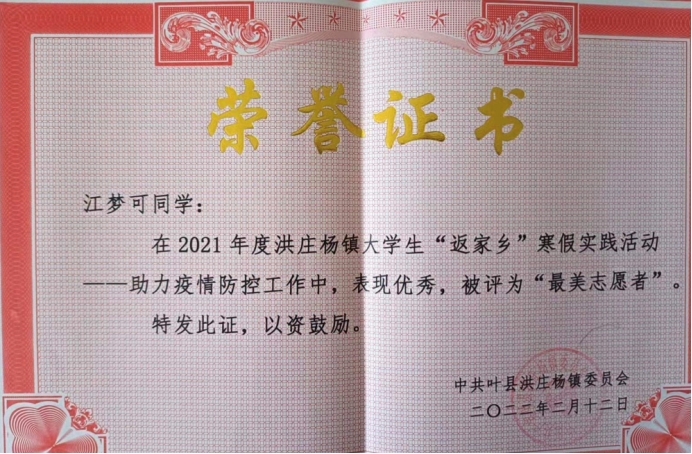 荣誉证书
江梦可同学：
在2021年度洪庄杨镇大学生“返家乡”寒假实践活动
——助力疫情防控工作中，表现优秀，被评为“最美志愿者”。
特发此证，以资鼓励。
中共叶县洪庄杨镇委员会
二〇二二年二月十二日